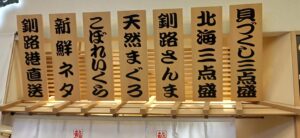 貝づくし三点盛
北海三点盛
釧路さんま
天然まぐろ
こぼれいくら
新鮮ネタ
釧路港直送